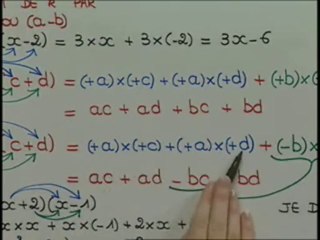 DE R PAR
ou (a-b)
x-2) = 3×x + 3×(-2) = 3x-6
c+d) = (+a)×(+c) + (+a)×(+d) + (+b)×
= ac + ad + bc + bd
c+d) = (+a)×(+c) + (+a)×(+d) + (-b)×
= ac + ad - bc bd
x+2)(x-1)
JE D
×x + x×(-1) + 2×x +